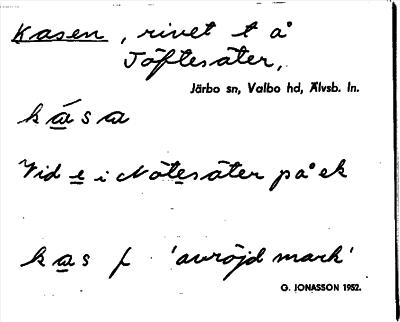 Kasen, rivet t å
Töftesäter,
Järbo sn, Valbo hd, Älvsb. ln.
kása
Vid e i Nötesäter på ek
kas f 'avröjd mark'
G. JONASSON 1952.